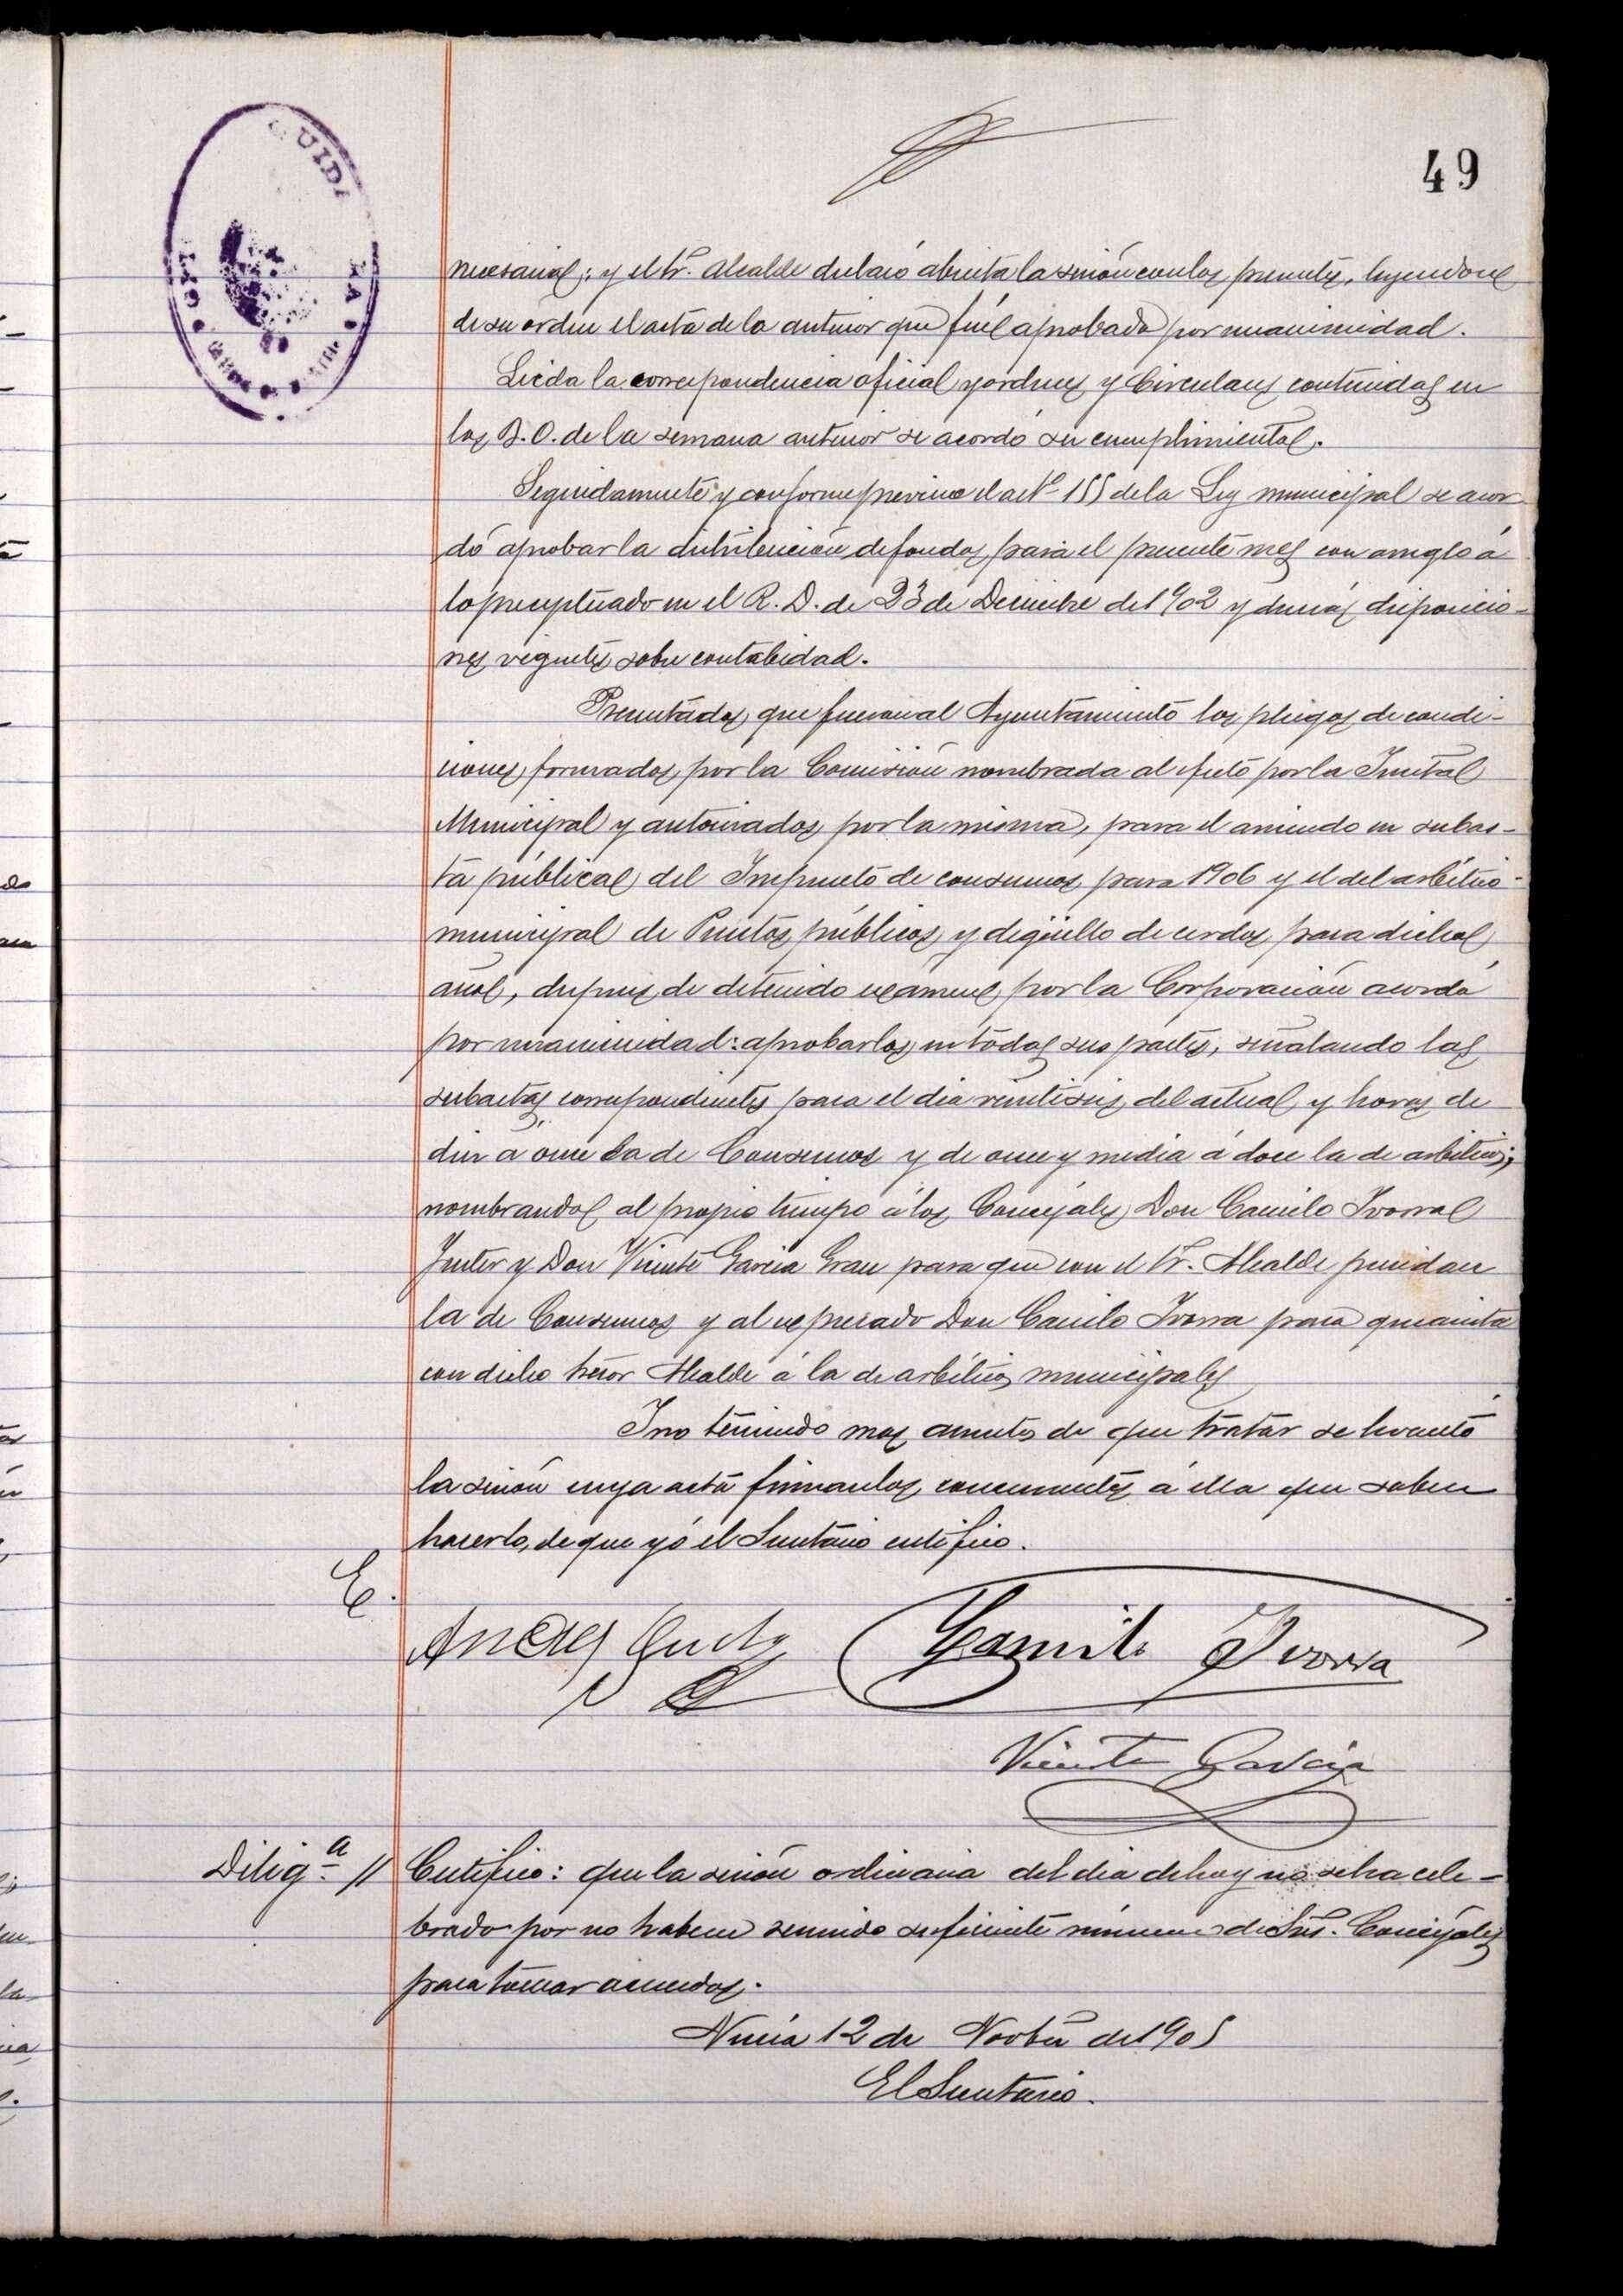 49
necesario; y el Sr. Alcalde declaró abierta la sesión con los presentes, leyendose
de su orden el acta de la anterior que fué aprobada por unanimidad.
Leida la correspondencia oficial y ordenes y Circulares contenidas en
los B.O. de la semana anterior se acordó su cumplimiento.
Seguidamente y conforme previene el artº 155 de la Ley municipal se acor
dó aprobar la distribución de fondos para el presente mes con arreglo á
lo preceptuado en el R. D. de 23 de Diciembre de 1902 y demás disposicio-
nes vigentes sobre contabilidad.
Presentados que fueron al Ayuntamiento los pliegos de condi-
ciones, formados por la Comisión nombrada al efecto por la Junta
Municipal y autorizados por la misma, para el arriendo en subas-
ta pública del Impuesto de consumos para 1906 y el del arbitrio
municipal de Puestos públicos y degüello de cerdos para dicho
año, despues de detenido exámen por la Corporación acordó
por unanimidad: aprobarlos en todas sus partes, señalando las
subastas correspondientes para el dia veintiseis del actual y horas de
diez á once la de Consumos y de once y media á doce la de arbitrios;
nombrando al propio tiempo á los Concejales Don Camilo Ivorra
Fuster y Don Vicente Garcia Grau para que con el Sr. Alcalde presidan
la de Consumos y al expresado Don Camilo Ivorra para que asista
con dicho señor Alcalde á la de arbitrios municipales
Y no teniendo mas asuntos de que tratar se levantó
la sesión cuya acta firman los concurrentes á ella que saben
hacerlo, de que yó el Secretario certifico.
E.
Andres
Camilo Ivorra
Vicente Garcia
Diligª //
Certifico: que la sesión ordinaria del dia de hoy no se ha cele-
brado por no haberse reunido suficiente número de Sres. Concejales
para tomar acuerdos.
Nucia 12 de Novbre de 1905
El Secretario.